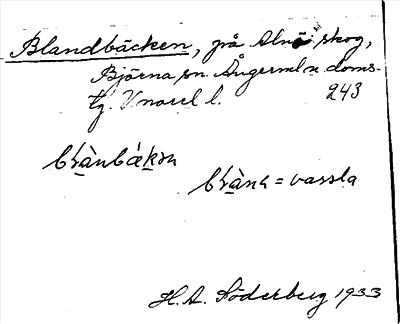 Blandbäcken, på Alnö skog,
Björna sn Ångerml:s doms-
tg. Vnorrl l. 243
blànbækən
blàna = vassla
H.A. Söderberg 1933